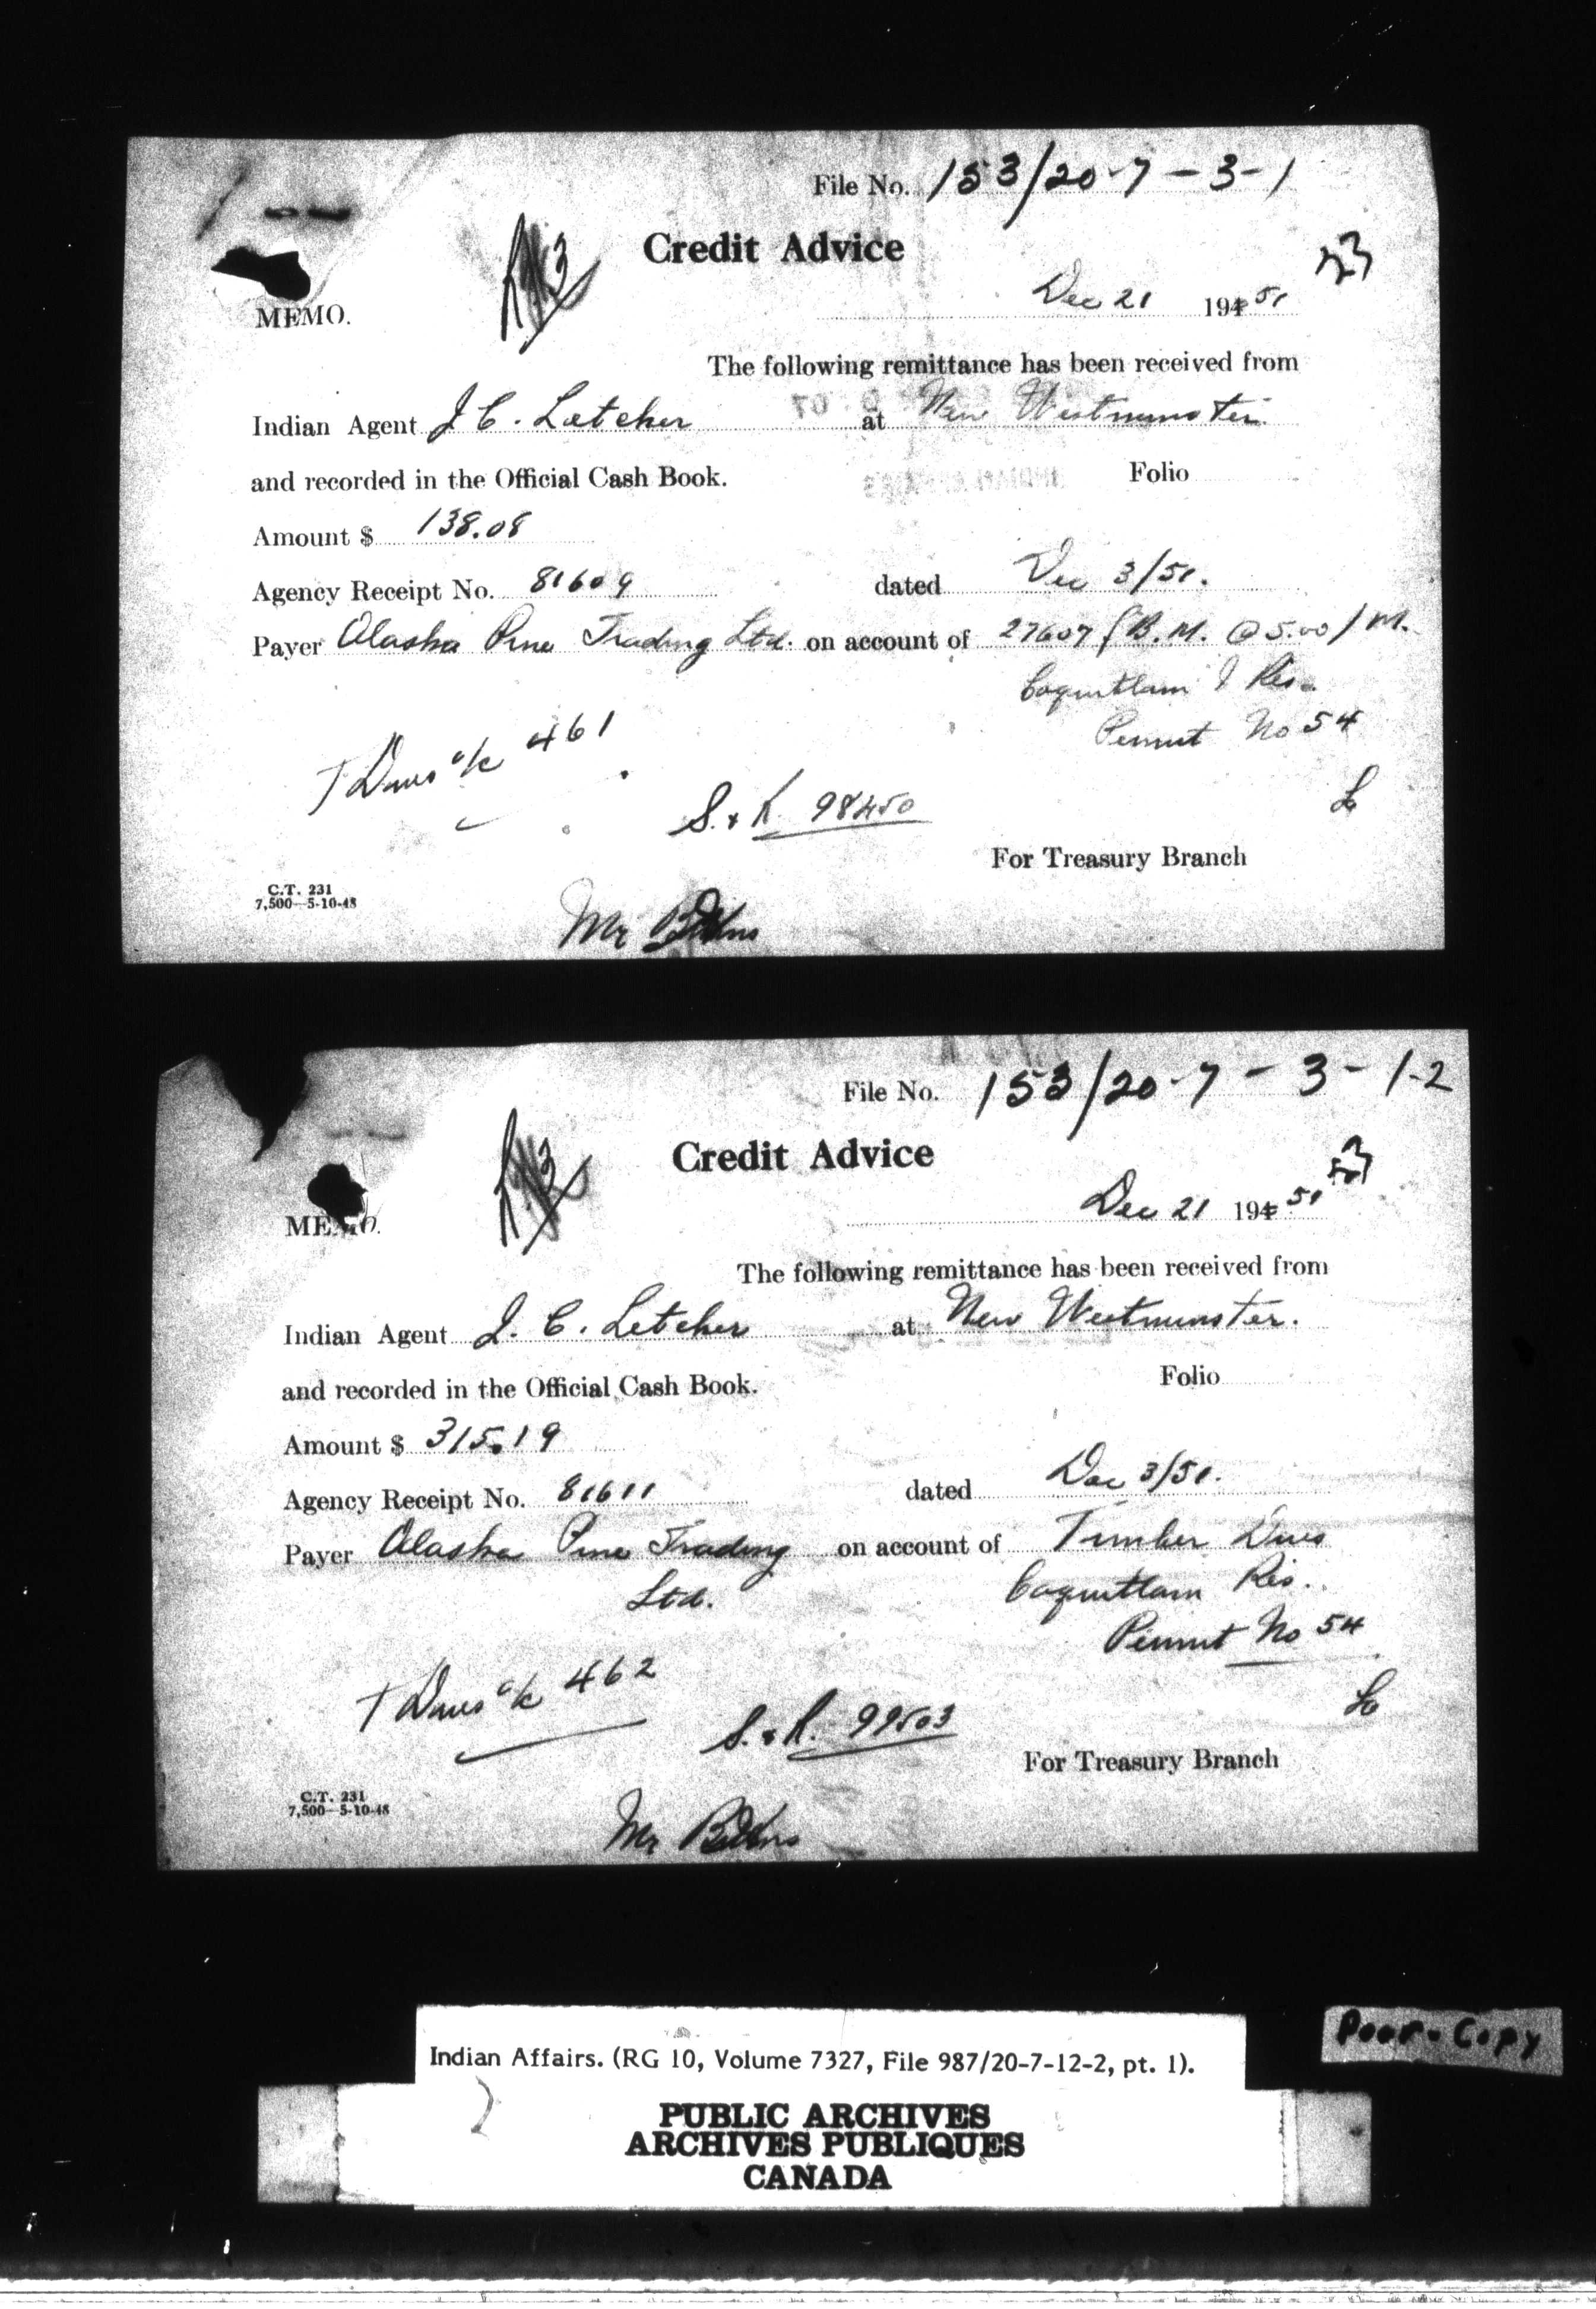 File No. 153/20-7-3-1
Credit Advice
23
Dec 21 194 51
MEMO.
The following remittance has been received from
Indian Agent J C. Letcher at New Westminster
and recorded in the Official Cash Book. Folio
Amount $ 138.08
Agency Receipt No. 81609 dated Dec 3/51.
Payer Alaska Pine Trading Ltd. on account of 27607 f B.M. @ 5.00 / M.
Coquitlam I Res.
Permit No 54
T Dues a/c 461
S. & R. 98450
For Treasury Branch
C.T. 231
7,500—5-10-48
Mr
File No. 153/20-7-3-1-2
Credit Advice
Dec 21 194 51
MEMO.
The following remittance has been received from
Indian Agent J. C. Letcher at New Westminster.
and recorded in the Official Cash Book. Folio
Amount $ 315.19
Agency Receipt No. 81611 dated Dec 3/51.
Payer Alaska Pine Trading on account of Timber Dues
Ltd. Coquitlam Res.
Permit No 54
T Dues a/c 462
S. & R. 99503
For Treasury Branch
C.T. 231
7,500—5-10-48
Mr
Poor Copy
Indian Affairs. (RG 10, Volume 7327, File 987/20-7-12-2, pt. 1).
PUBLIC ARCHIVES
ARCHIVES PUBLIQUES
CANADA